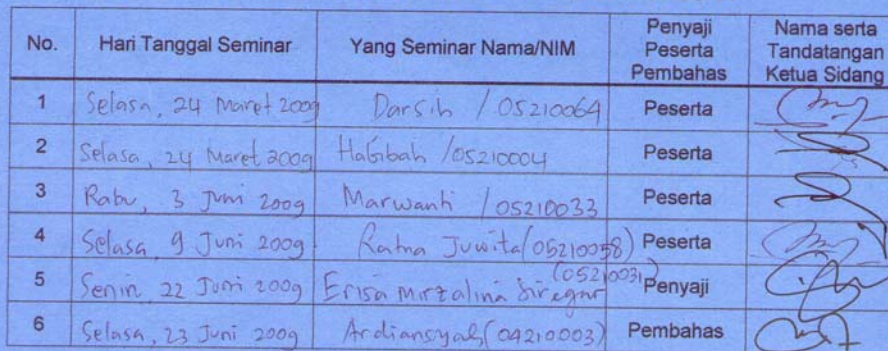 No. Hari Tanggal Seminar Yang Seminar Nama/NIM Penyaji Peserta Pembahas Nama serta Tandatangan Ketua Sidang
1 Selasa, 24 Maret 2009 Darsih / 05210064 Peserta
2 Selasa, 24 Maret 2009 Habibah /05210004 Peserta
3 Rabu, 3 Juni 2009 Marwanti / 05210033 Peserta
4 Selasa 9 Juni 2009 Ratna Juwita (05210058) Peserta
5 Senin, 22 Juni 2009 Erisa Mirzalina Siregar (05210031) Penyaji
6 Selasa, 23 Juni 2009 Ardiansyah (04210003) Pembahas